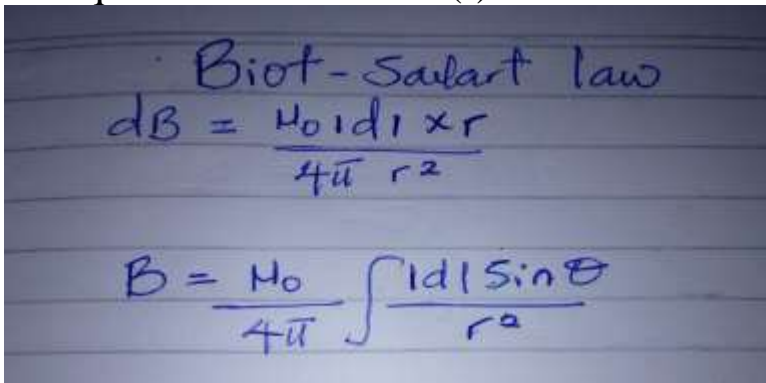 Biot-Savart law
dB = μ0 I dl × r
4π r²
B = μ0 ∫ I dl Sin θ
4π r²